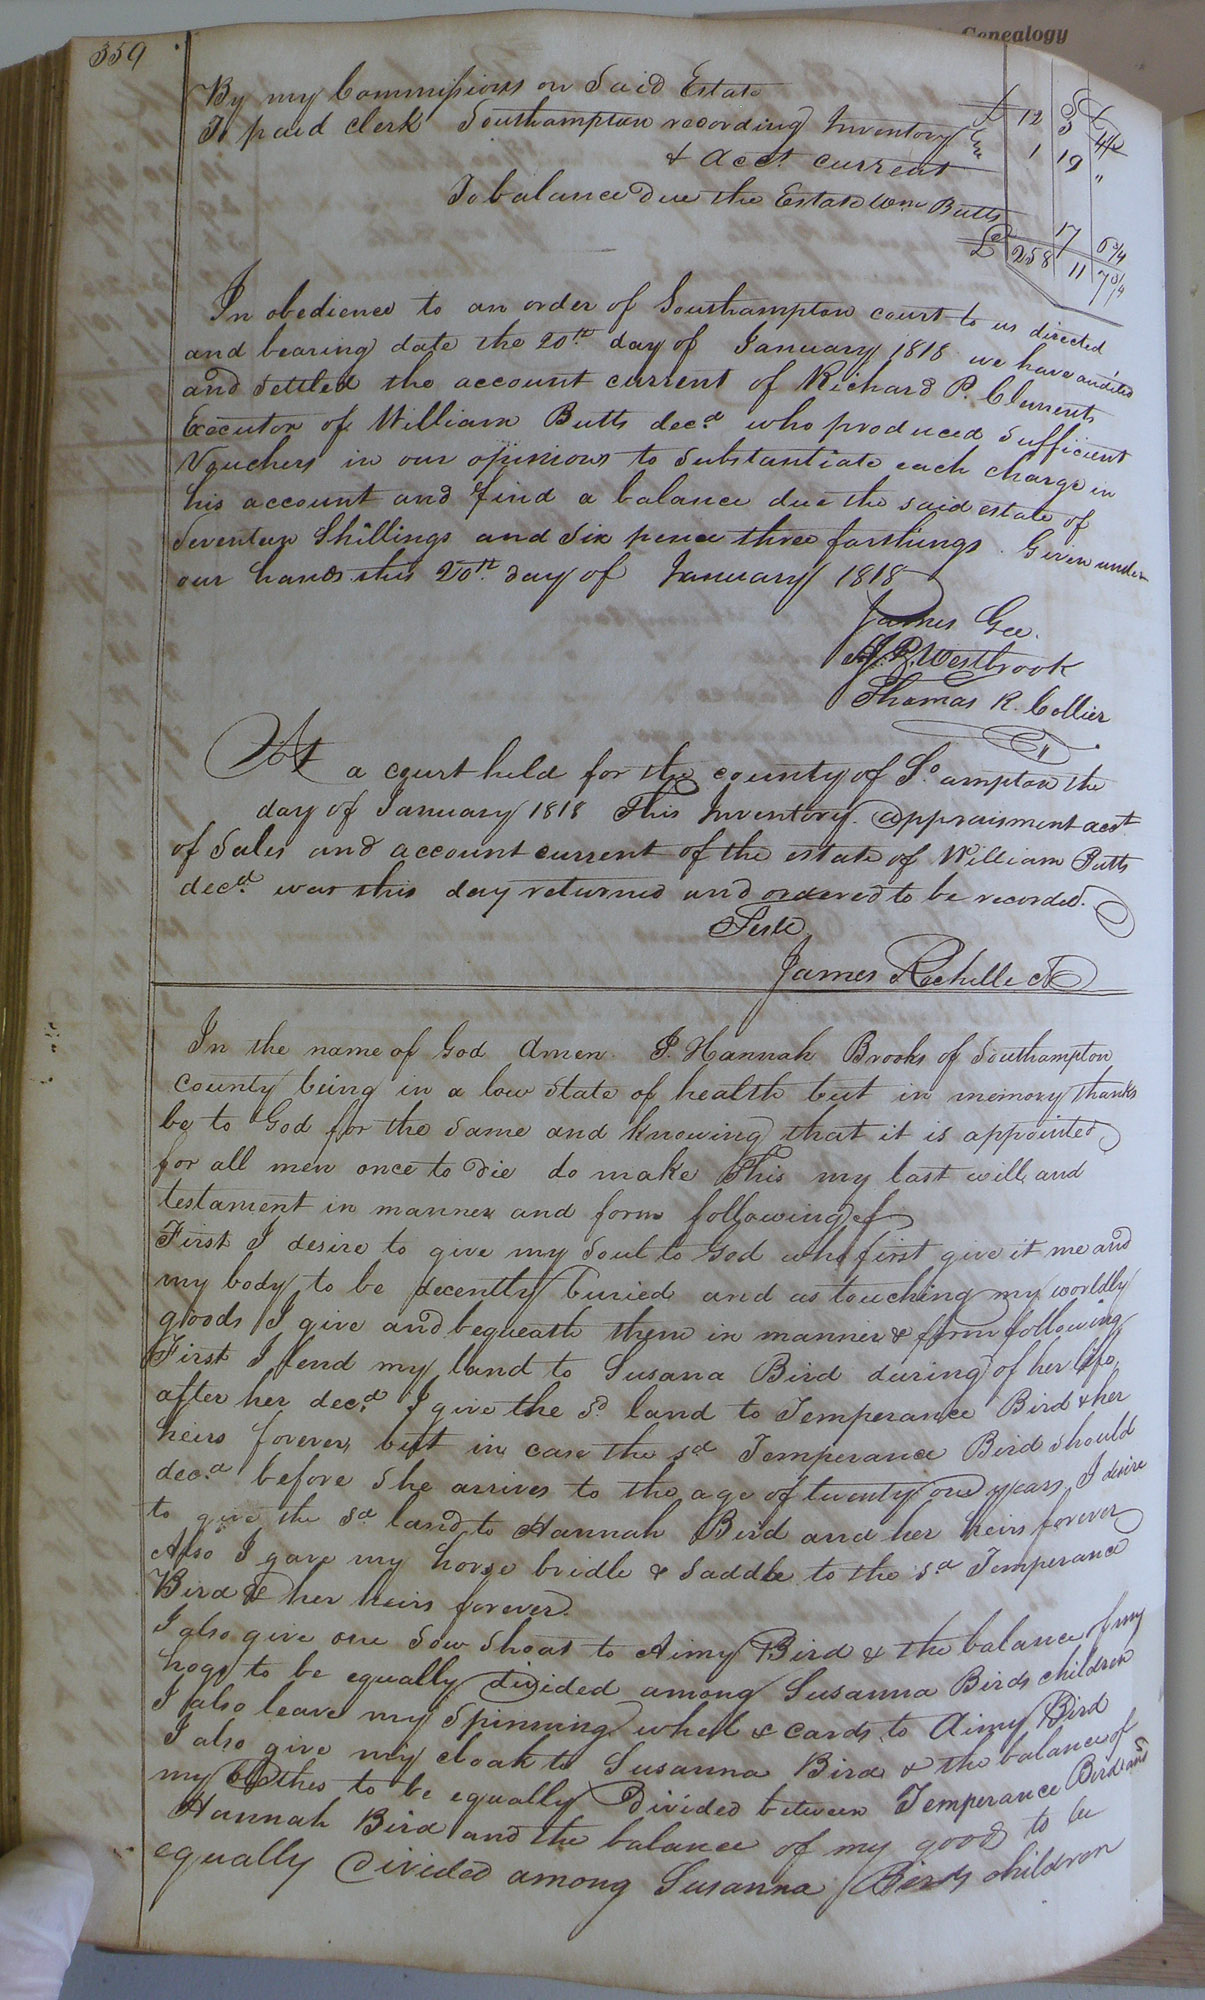 359
Genealogy
By my Commissions on Said Estate £ 12 5
To paid clerk Southampton recording Inventory
& acct current 1 19 "
To balance Due the Estate Wm Butts 17 6 3/4
£ 258 11 7 3/4
In obedience to an order of Southampton court to us directed
and bearing date the 20th day of January 1818 we have audited
and Settled the account current of Richard P. Clements
Executor of William Butts decd who produced Sufficient
Vouchers in our opinions to Substantiate each charge in
his account and find a balance due the said estate of
Seventeen Shillings and Six pence three farthings. Given under
our hands this 20th day of January 1818
James Gee.
J. P. Westbrook
Thomas R. Collier
At a court held for the county of So ampton the
day of January 1818 This Inventory. appraisment acct
of Sales and account current of the estate of William Butts
decd was this day returned and ordered to be recorded.
Teste
James Rochelle
In the name of God Amen. I. Hannah Brooks of Southampton
County being in a low State of health but in memory thanks
be to God for the Same and Knowing that it is appointed
for all men once to Die do make This my last will and
testament in manner and form following
First I desire to give my Soul to God who first give it me and
my body to be decently buried and as touching my worldly
goods I give and bequeath them in manner & form following
First I lend my land to Susana Bird during of her life,
after her decd I give the sd land to Temperance Bird & her
heirs forever, but in case the sd Temperance Bird Should
decd before She arrives to the age of twenty one years I desire
to give the sd land to Hannah Bird and her heirs forever
Also I gave my horse bridle & Saddle to the sd Temperance
Bird & her heirs forever.
I also give one Sow Shoat to Aimy Bird & the balance of my
hogs to be equally divided among Susanna Birds children
I also leave my Spinning whel & cards to Aimy Bird
I also give my cloak to Susanna Bird & the balance of
my clothes to be equally Divided between Temperance Bird and
Hannah Bird and the balance of my good to be
equally Divided among Susanna Birds children